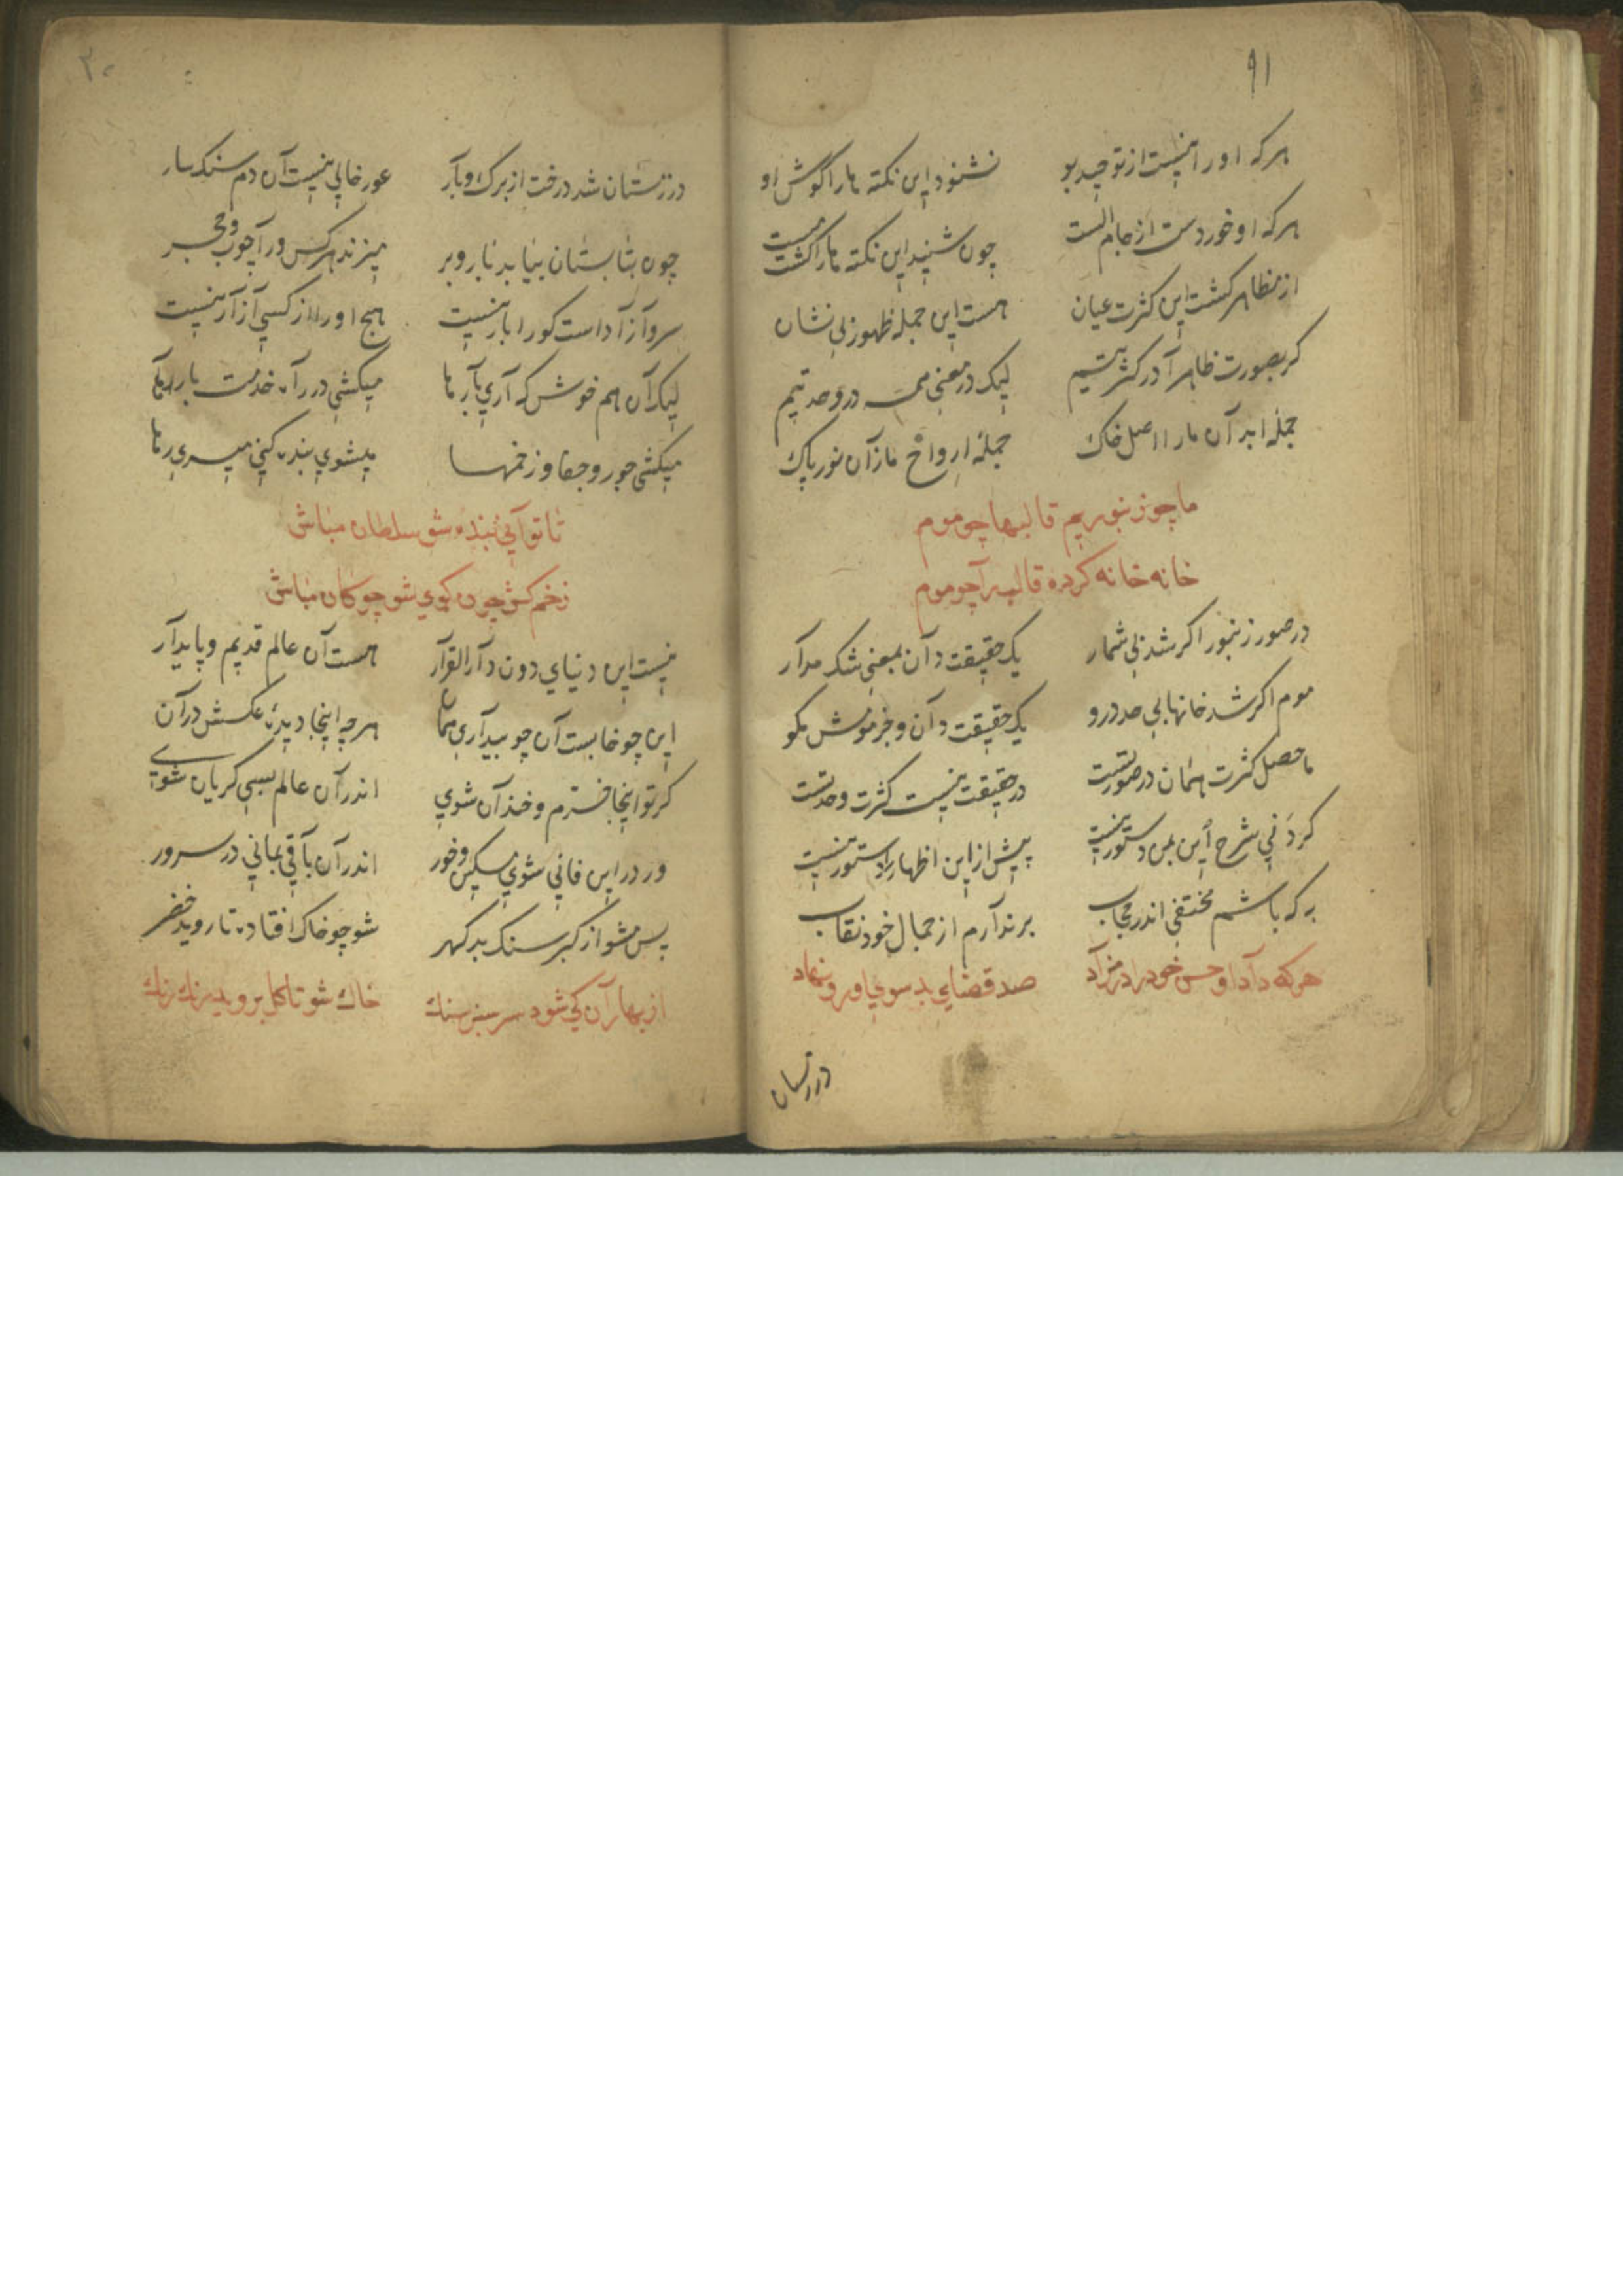 ۹۱
هرکه او را نیست از توحید بو نشنود این نکته ها را گوش او
هرکه او خوردست از جام الست چون شنید این نکته ها را گشت مست
از مظاهر کشت این کثرت عیان هست این جمله ظهور بی نشان
کر بصورت ظاهرا در کثرتیم لیک در معنی همه در وحدتیم
جمله ابدآن ما را اصل خاک جملهٔ ارواح ما زآن نور پاک
ما چو زنبوریم قالبها چو موم
خانه خانه کرده قالب را چو موم
در صور زنبور اکر شد بی شمار یک حقیقت دآن بمعنی شک مدآر
موم اکر شد خانهایی صد درو یک حقیقت دآن و جز مومش مکو
ماحصل کثرت همان در صورتست در حقیقت نیست کثرت وحدتست
کردنی شرح این بمن دستور نیست پیش از این اظهار را دستور نیست
به که باشم مختفی اندر حجاب برندآرم از جمال خود نقاب
هرکه دآد او حسن خود را در مزآد صد قضایی بد سوی او رو نهاد
در زمستان
۳۰
در زمستان شد درخت از برک و بآر عور خالی نیست آن دم سنکسار
چون بتابستان بیاید بار و بر میزند هرکس ورآ چوب و حجر
سرو آزآداست کورا بار نیست هیچ اورا از کسی آزآر نیست
لیک آن هم خوش که آری بآرها میکشی در رآه خدمت بارها
میکشی جور و جفا و زخمها میشوی بنده کنی میسری رها
تا توآنی بنده شو سلطان مباش
زخم کش چون کوی شو چوکان مباش
نیست این دنیای دون دآر القرآر هست آن عالم قدیم و پایدآر
این چو خابست آن چو بیدآری همان هرچه اینجا دیدهٔ عکسش در آن
کر تو اینجا خرم و خندآن شوی اندر آن عالم بسی کریان شوی
ور در این فانی شوی مسکین و خور اندر آن بآقی بمانی در سرور
پس مشو از کبر سنک بدکهر شو چو خاک افتاده تا روید خضر
از بهارآن کی شود سرسبز سنك خاك شو تا کل بروید رنك رنك